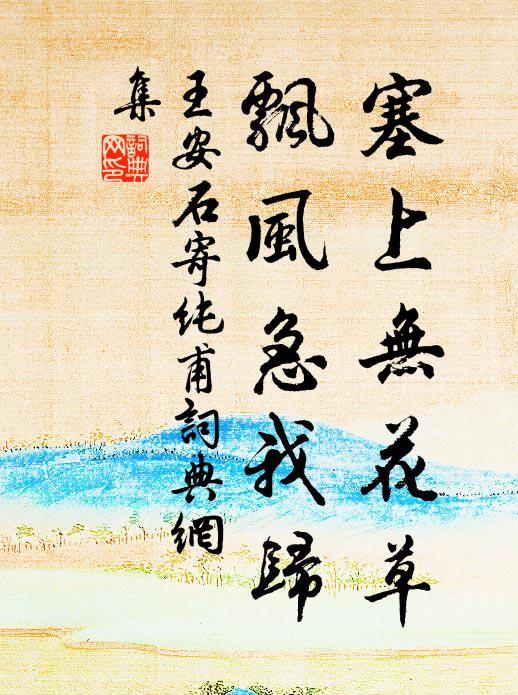 塞上無花草
飄風急我歸
王安石寄純甫詞典網
集
詞典
网印